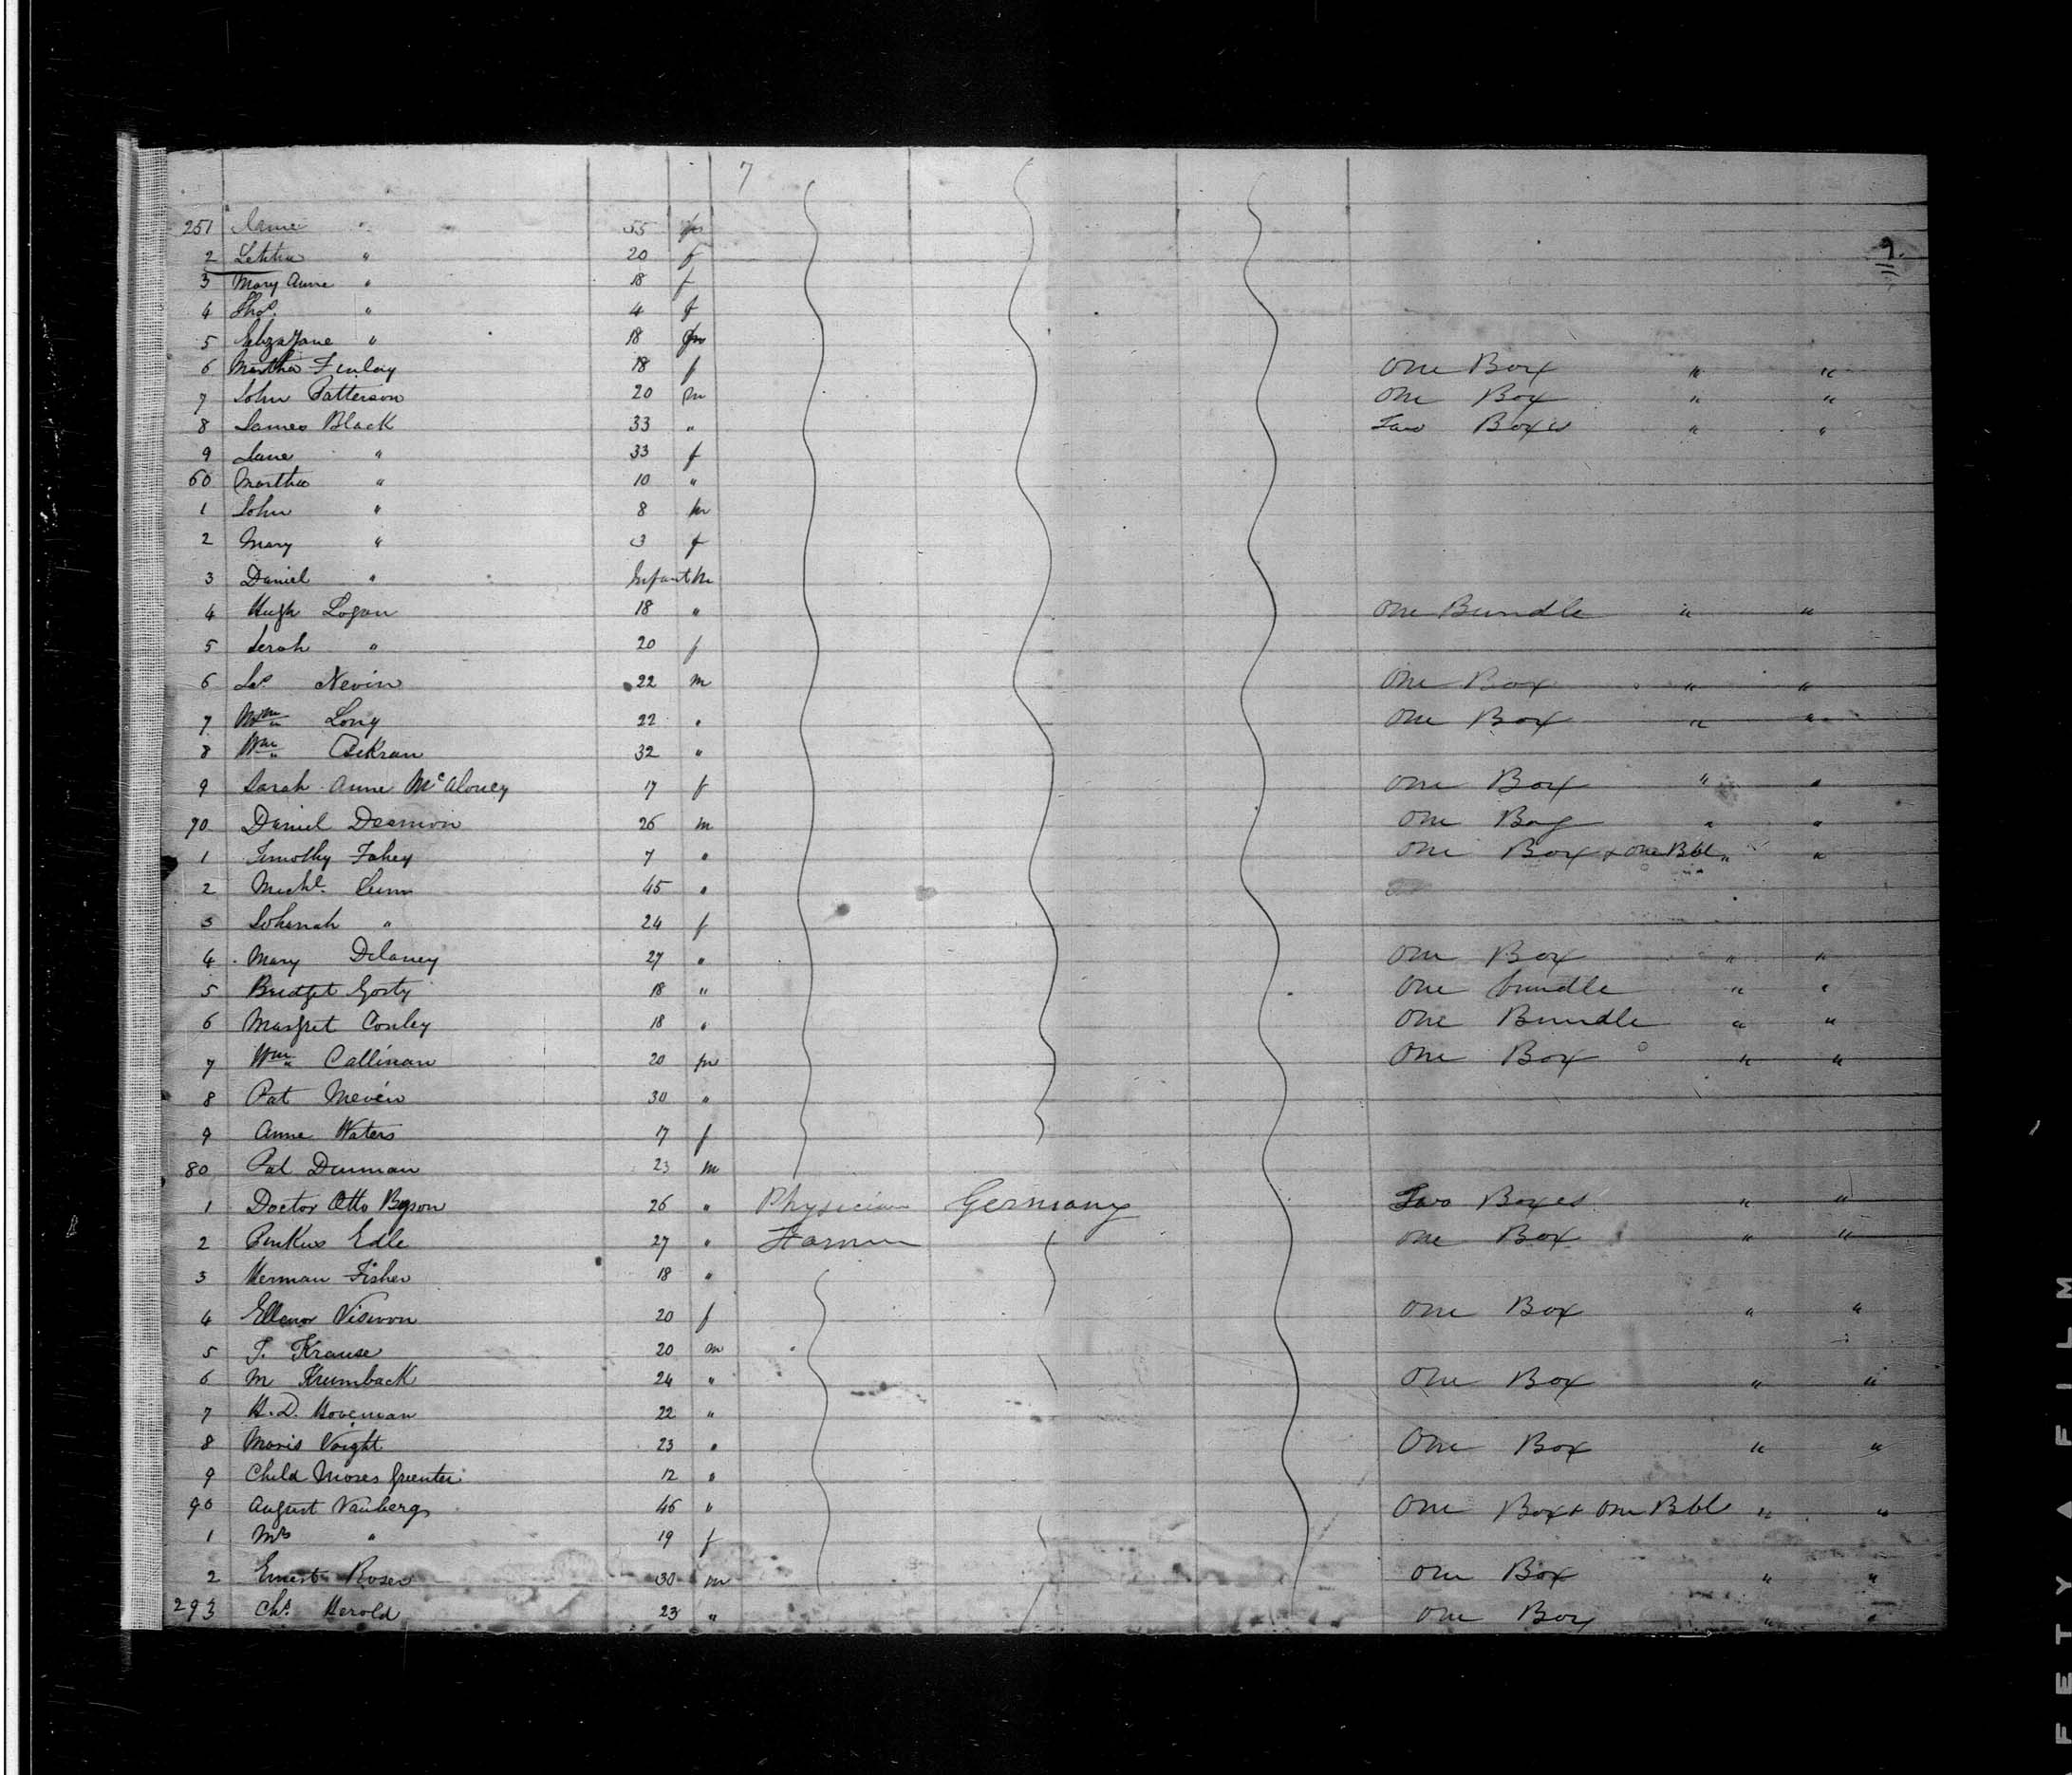 7
9.
251 " 55
2 Letitia " 20 f
3 Mary Anne " 18 f
4 Thos. " 4 f
5 Eliza Jane " 18
6 Martha Finlay 18 f One Box " "
7 John Patterson 20 m One Box " "
8 James Black 33 " Two Boxes " "
9 Jane " 33 f
60 Martha " 10 "
1 John " 8 m
2 Mary " 3 f
3 Daniel " Infant m
4 Hugh Logan 18 " One Bundle " "
5 Serah " 20 f
6 Nevin 22 m One Box " "
7 Wm Long 22 " One Box " "
8 Wm 32 "
9 Sarah Anne McAloney 17 f One Box " "
70 Daniel Desmion 26 m One Bag " "
1 Timothy Fahey 7 " One Box + One Bbl " "
2 Michl. 45 "
3 Johanah " 24 f
4 Mary Delaney 27 " One Box " "
5 Bridget Gorty 18 " One bundle " "
6 Margret Conley 18 " One Bundle " "
7 Wm Callinan 20 m One Box " "
8 Pat 30 "
9 Anne Waters 17 f
80 Pat 23 m
1 Doctor Otto 26 " Physician Germany Two Boxes " "
2 Edle 27 " Farmer One Box " "
3 Herman Fisher 18 "
4 Ellenor 20 f One Box " "
5 T. Krause 20 m
6 M Krumback 24 " One Box " "
7 H. D. Hoveman 22 "
8 Moris Voight 23 " One Box " "
9 Child Moses 12 "
90 August 46 " One Box + One Bbl " "
1 Mrs " 19 f
2 Ernest Roser 30 m One Box " "
293 Chs. Herold 23 " One Box " "
FETY AFILM